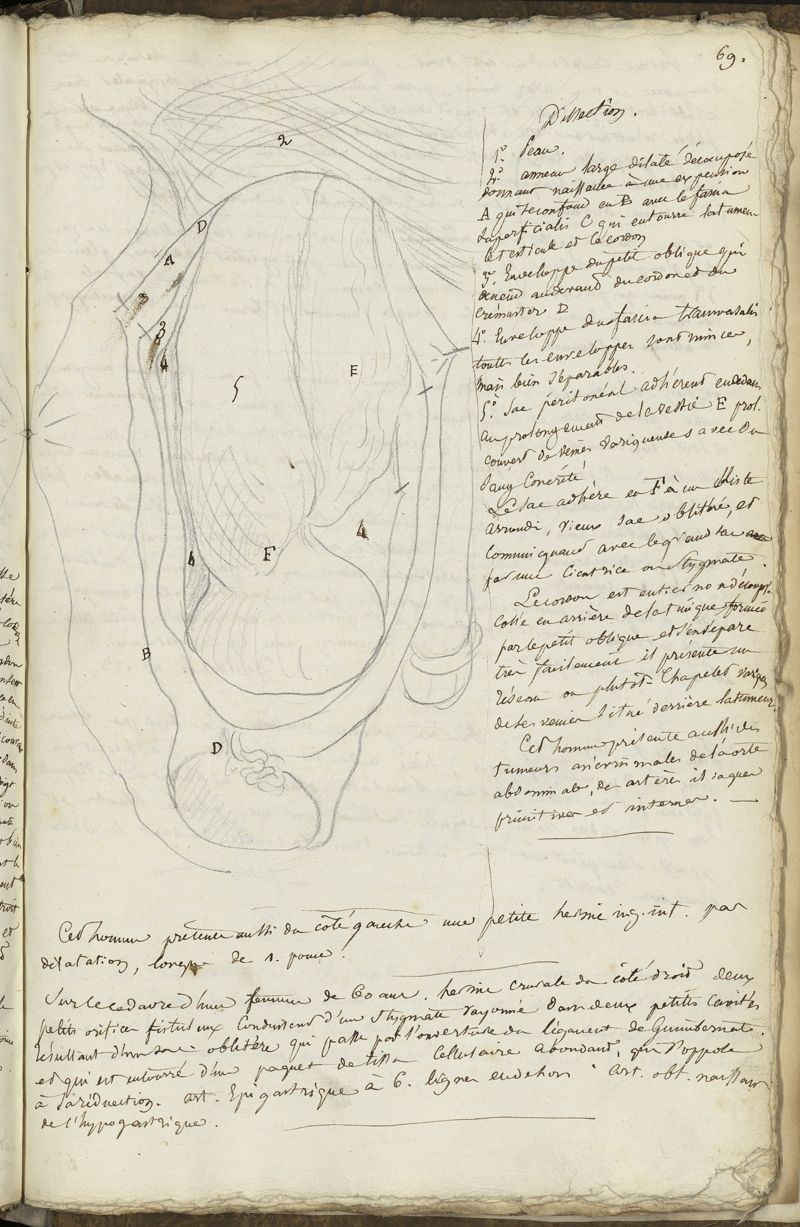 69.
Dissection.
1° Peau.
2° anneau large dilaté décomposé
donnant naissance à une expansion
A qui se confond en B avec le fascia
superficialis C qui entoure la tumeur
le testicule et le cordon
3° Enveloppe du petit oblique qui
descend audevant du cordon et du
crémaster D
4° Enveloppe du fascia transversalis
toutes les enveloppes sont minces,
mais bien séparables.
5° Sac péritonéal adhérent en dedans
au prolongement de la vessie E
couvert de veines variqueuses avec du
sang concrété
Le sac adhère en F à un kiste
arrondi, vieux sac oblitéré, et
communiquant avec le grand sac
par une cicatrice ou stygmate.
Le cordon est entier non décomposé
collé en arrière de la tunique formée
par le petit oblique et s'en sépare
très facilement il présente un
réseau ou plutot chapelet
de ses veines situé derrière la tumeur.
Cet homme présente aussi des
tumeurs anévrismales de l'aorte
abdominale, des artères iliaques
primitives et internes.
2
D
A
3
3
4
5
E
F
4
B
D
Cet homme présente aussi du côté gauche une petite hernie ing. int. par
dilatation, longue de 1. pouce.
Sur le cadavre d'une femme de 60 ans. hernie crurale du côté droit deux
petits orifices fistuleux conduisent d'un stygmate rayonné dans deux petites cavités
résultant d'un sac oblitéré qui passe par l'ouverture du ligament de Guimbernat.
et qui est entouré d'un paquet de tissu cellulaire abondant, qui s'oppose
à sa réduction. art. Epigastrique à 6. lignes en dehors. art. obt. naissant
de l'hypogastrique.